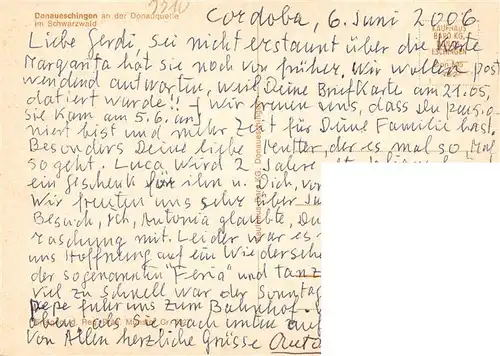 Donaueschingen an der Donauquelle
im Schwarzwald
Cordoba, 6. Juni 2006
Liebe Gerdi, sei nicht erstaunt über die Karte
Margarita hat sie noch von früher. Wir wollen post
wendend antworten, weil Deine Briefkarte am 21.05.
datiert wurde!! (Wir freuen uns, dass Du pensio
sie kam am 5.6. an)
niert bist und mehr Zeit für Deine Familie hast.
Besonders Deine liebe Mutter, der es mal so, mal
so geht. Luca wird 2 Jahre
ein Geschenk für ihn u. Dich, vo
Wir freuten uns sehr über
Besuch, ich, Antonia glaubte, Du
raschung mit. Leider war es
uns Hoffnung auf ein Wiederseh
der sogenannten "Feria" und tanz
viel zu schnell war der Sonntag
Pepe fuhr uns zum Bahnhof.
oben nach unten auf
von Allen herzliche Grüsse